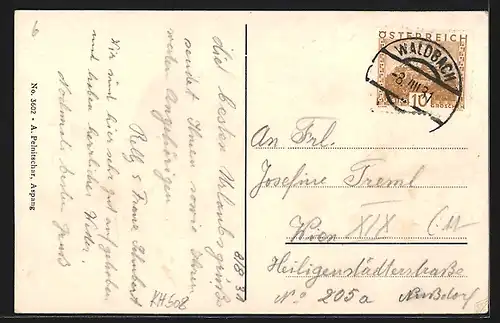 ÖSTERREICH
WALDBACH
-8.VIII.31
10
GROSCHEN
2/8 31
Die besten Urlaubsgrüße
sendet Ihnen sowie Ihren
werten Angehörigen
Relly & Franz Schubert
Wir sind hier sehr gut aufgehoben
und haben herrliches Wetter.
Nochmals besten Gruß
No. 3602 • A. Pelnitschar, Aspang
An Frl.
Josefine Treml
Wien XIX
Heiligenstädterstraße
No 205a Nußdorf
KH508